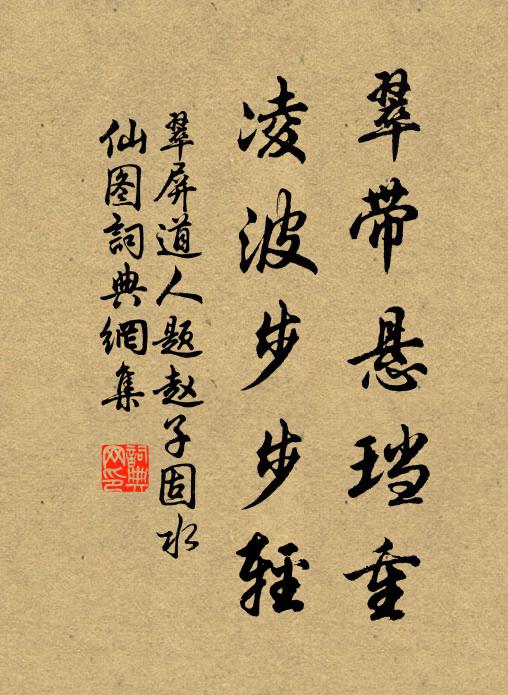 翠带悬珰重
凌波步步輕
翠屏道人题赵子固水
仙图詞典網集
詞典
网印